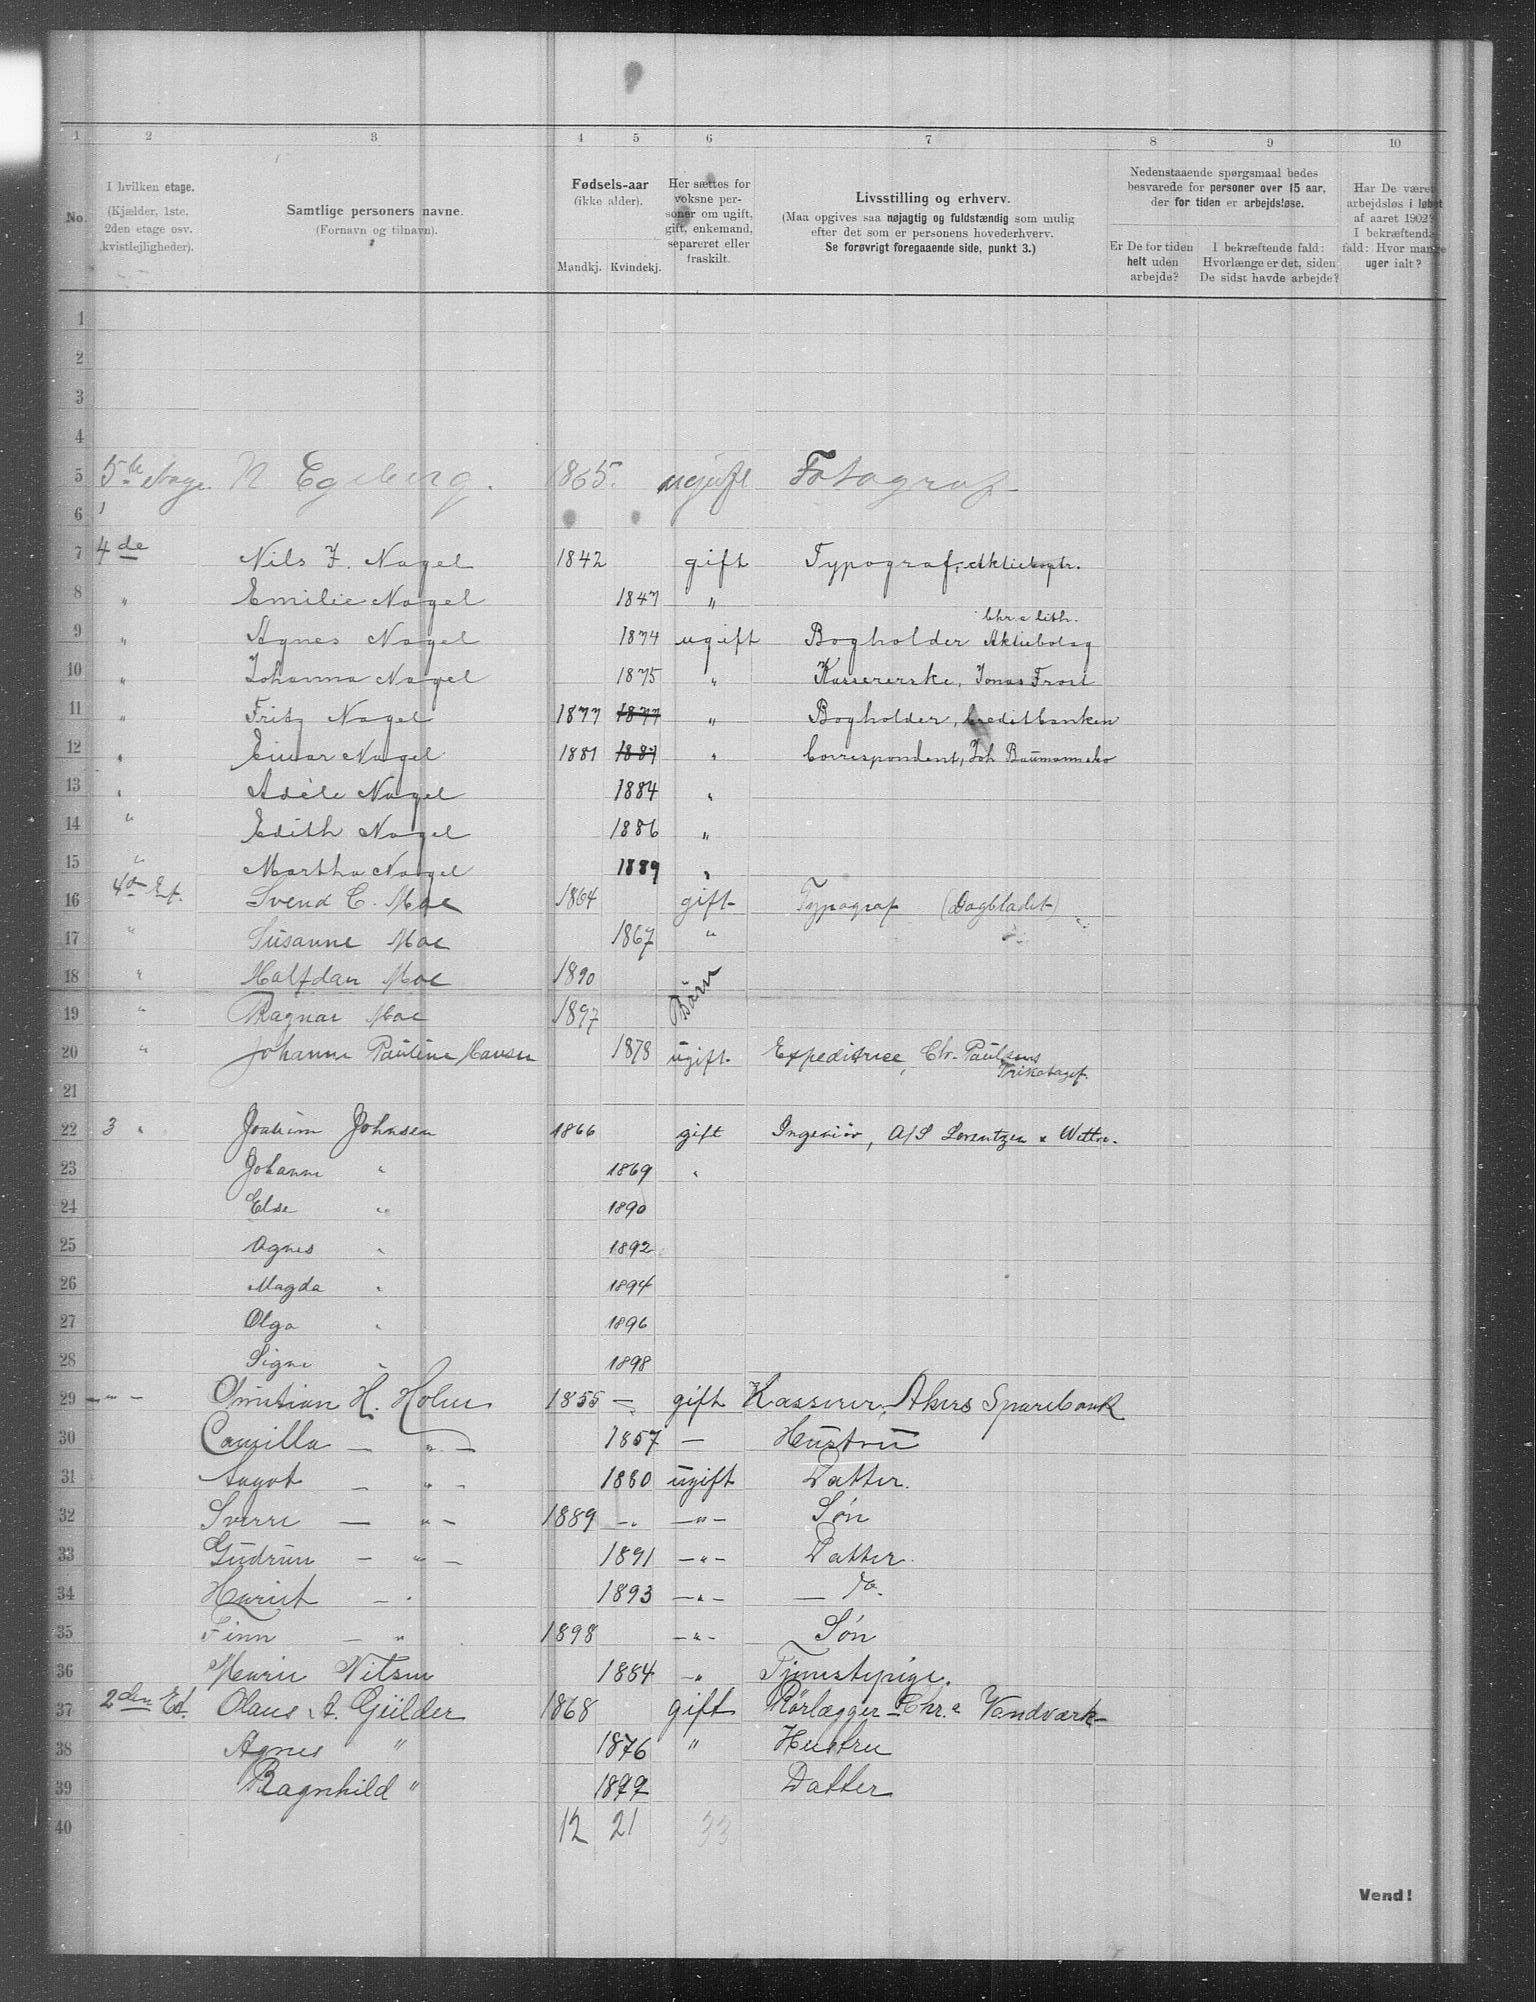 1 2 3 4 5 6 7 8 9 10
No.
I hvilken etage. (Kjælder, 1ste, 2den etage osv. kvistlejligheder).
Samtlige personers navne. (Fornavn og tilnavn).
Fødsels-aar (ikke alder). Mandkj. Kvindekj.
Her sættes for voksne personer om ugift, gift, enkemand, separeret eller fraskilt.
Livsstilling og erhverv. (Maa opgives saa nøjagtig og fuldstændig som mulig efter det som er personens hovederhverv. Se forøvrigt foregaaende side, punkt 3.)
Nedenstaaende spørgsmaal bedes besvarede for personer over 15 aar, der for tiden er arbejdsløse.
Er De for tiden helt uden arbejde?
I bekræftende fald: Hvorlænge er det, siden De sidst havde arbejde?
Har De været arbejdsløs i løbet af aaret 1902? I bekræftende fald: Hvor mange uger ialt?
1
2
3
4
5 5te Etage N Egeberg. 1865. ugift Fotograf
6
7 4de Nils J. Nagel 1842 gift Typograf, Aktiebogtr.
8 " Emilie Nagel 1847 "
Chr.a lith.
9 " Agnes Nagel 1874 ugift Bogholder Aktiebolag
10 " Johanna Nagel 1875 " Kassererske, Jonas Frost
11 " Fritz Nagel 1877 1877 " Bogholder, Creditbanken
12 " Einar Nagel 1881 1881 " Correspondent, Joh Baumann & co
13 " Adèle Nagel 1884 "
14 " Edith Nagel 1886 "
15 " Martha Nagel 1889 "
16 4de Et. Svend C. Moe 1864 gift Typograf (Dagbladet)
17 " Susanne Moe 1867 "
18 " Halfdan Moe 1890 Børn
19 " Ragnar Moe 1897
20 " Johanne Pauline Hansen 1878 ugift Expeditrice, Chr. Paulsens
Trikotagef.
21
22 3 " Joakim Johnsen 1866 gift Ingeniør, A/S Lorentzen & Wettre.
23 Johanne " 1869 "
24 Else " 1890
25 Agnes " 1892
26 Magda " 1894
27 Olga " 1896
28 Signe " 1898
29 — " — Christian H. Holm 1855 — gift Kasserer, Akers Sparebank
30 Camilla — " — 1857 — Hustru
31 Aagot — " — 1880 ugift Datter.
32 Sverre — " — 1889 — — " — Søn
33 Gudrun — " — 1891 — " — Datter.
34 Harriet — " 1893 — " — — do.
35 Finn — " 1898 — " — Søn
36 Marie Nilsen 1884 — " Tjenestepige.
37 2den Et. Olaus A. Gülder 1868 gift Rørlægger — Chr.a Vandværk —
38 Agnes " 1876 " Hustru
39 Ragnhild " 1899 Datter
40 12 21 33
Vend!